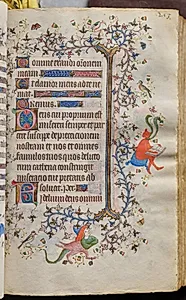 Domine exaudi orōnem
meam
Et clamor meus ad te ue
niat
Oremus
Deus cui proprium est
misereri semper et par
cere suscipe deprecationem
nostram et nos et omnes
famulos tuos quos delicto
rum cathena constringit
miseracio tue pietatis ab
soluat. Per
fidelium deus omnium